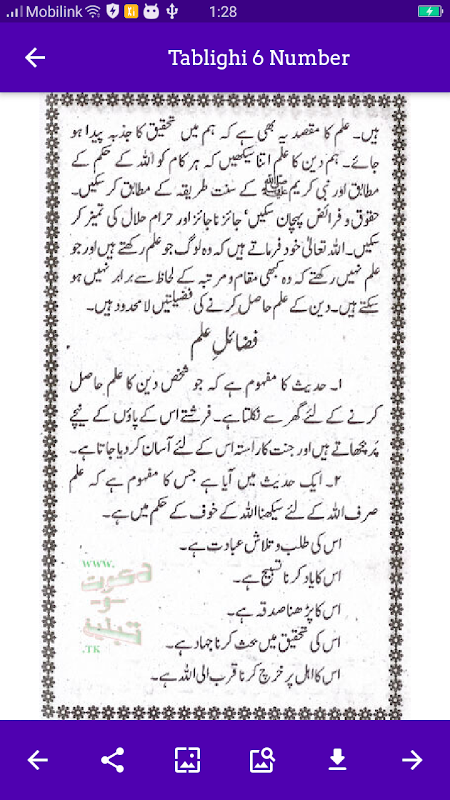 Mobilink 1:28
Tablighi 6 Number
ہیں۔ علم کا مقصد یہ بھی ہے کہ ہم میں تحقیق کا جذبہ پیدا ہو
جائے۔ ہم دین کا علم اتنا سیکھیں کہ ہر کام کو اللہ کے حکم کے
مطابق اور نبی کریم ﷺ کے سنت طریقہ کے مطابق کر سکیں۔
حقوق و فرائض پہچان سکیں‘ جائز ناجائز اور حرام حلال کی تمیز کر
سکیں۔ اللہ تعالیٰ خود فرماتے ہیں کہ وہ لوگ جو علم رکھتے ہیں اور جو
علم نہیں رکھتے کہ وہ کبھی مقام و مرتبہ کے لحاظ سے برابر نہیں ہو
سکتے ہیں۔ دین کے علم حاصل کرنے کی فضیلتیں لا محدود ہیں۔
فضائلِ علم
۱۔ حدیث کا مفہوم ہے کہ جو شخص دین کا علم حاصل
کرنے کے لئے گھر سے نکلتا ہے۔ فرشتے اس کے پاؤں کے نیچے
پر بچھاتے ہیں اور جنت کا راستہ اس کے لئے آسان کر دیا جاتا ہے۔
۲۔ ایک حدیث میں آیا ہے جس کا مفہوم ہے کہ علم
صرف اللہ کے لئے سیکھنا اللہ کے خوف کے حکم میں ہے۔
اس کی طلب و تلاش عبادت ہے۔
اس کا یاد کرنا تسبیح ہے۔
اس کا پڑھنا صدقہ ہے۔
اس کی تحقیق میں بحث کرنا جہاد ہے۔
اس کا اہل پر خرچ کرنا قرب الی اللہ ہے۔
www.
دعوت
و
تبلیغ
.TK